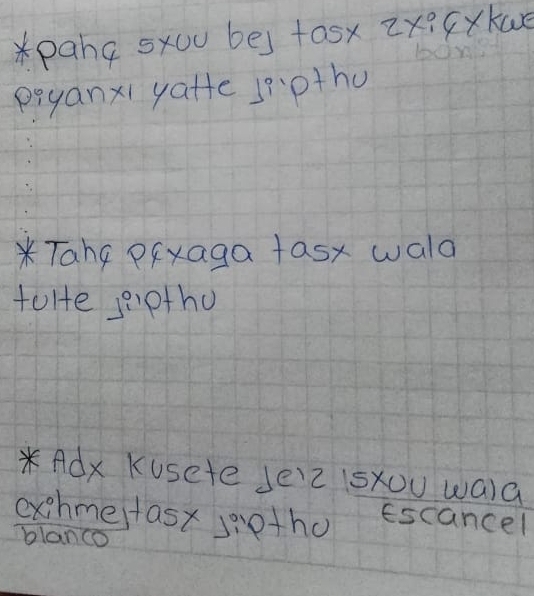 *pahç sxuu bej tasx zxiçxkwe
piyanxi yatte jiipthu
* Tahç pçxaga tasx wala
tulte jiipthu
* Adx kusete jeiz isxuu wala
exihme jtasx jiipthu Escancel
blanco